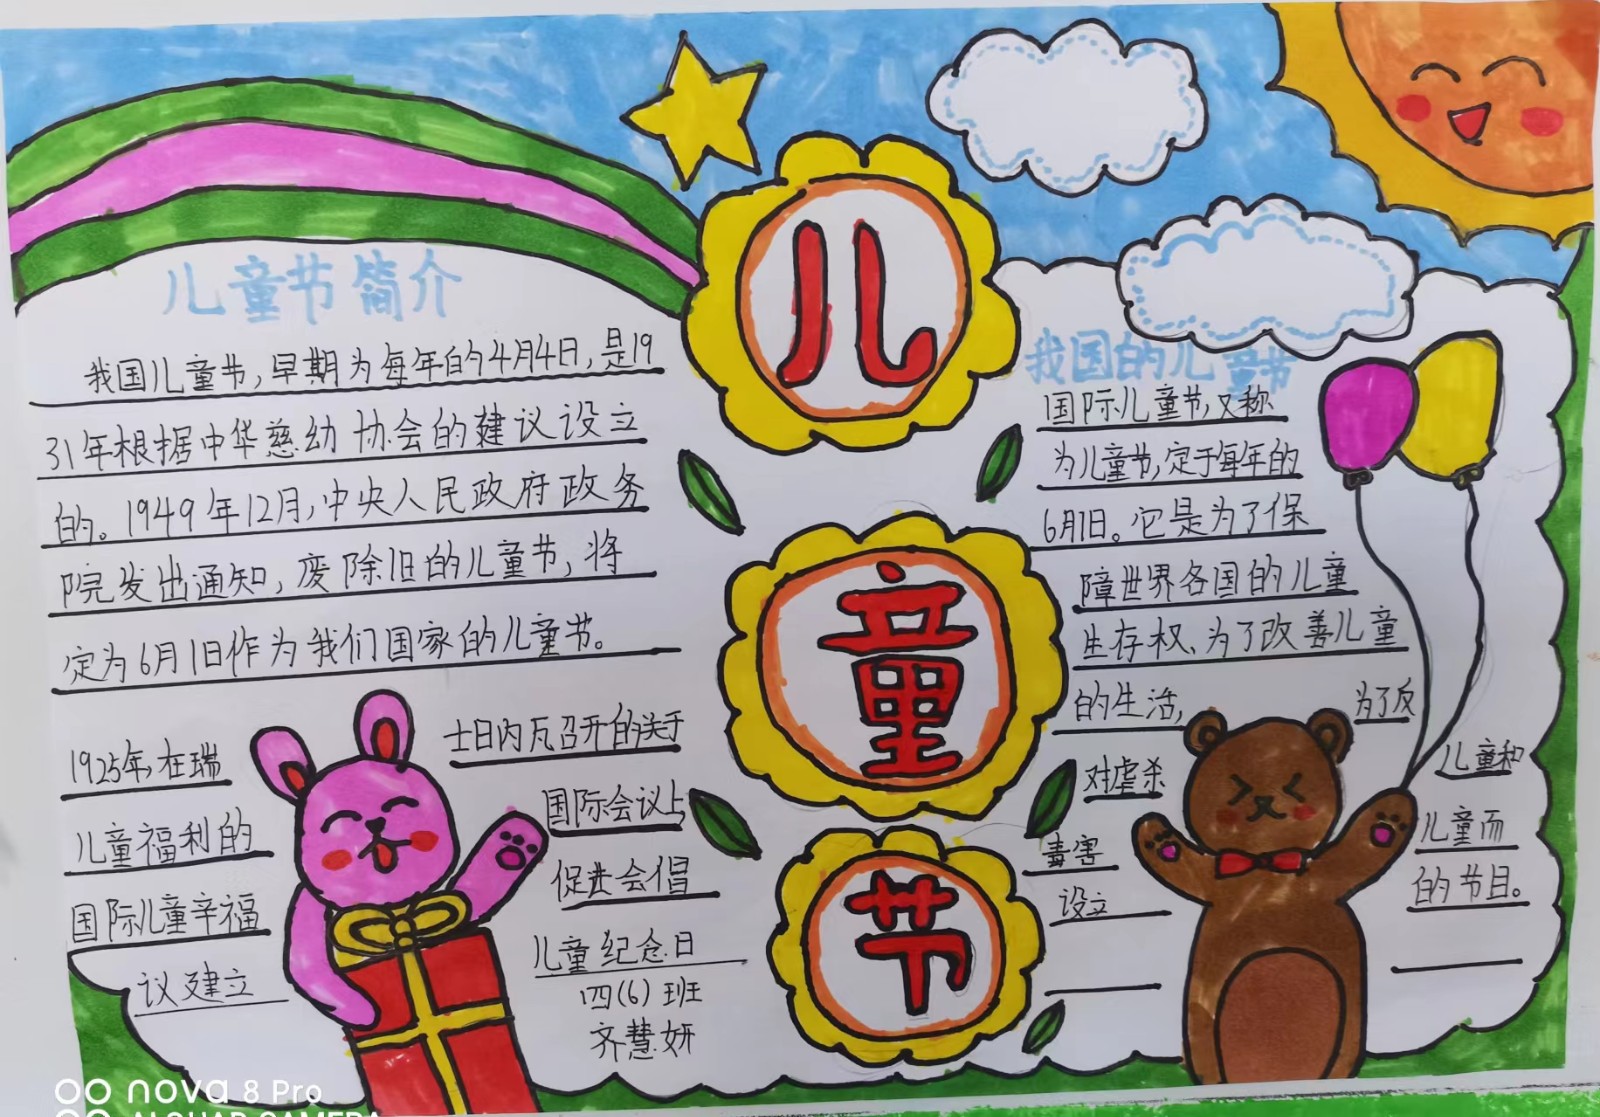 儿童节
儿童节简介
我国儿童节,早期为每年的4月4日,是19
31年根据中华慈幼协会的建议设立
的。1949年12月,中央人民政府政务
院发出通知,废除旧的儿童节,将
定为6月1日作为我们国家的儿童节。
1925年,在瑞
士日内瓦召开的关于
儿童福利的
国际会议上
国际儿童幸福
促进会倡
议建立
儿童纪念日
四(6)班
齐慧妍
我国的儿童节
国际儿童节,又称
为儿童节,定于每年的
6月1日。它是为了保
障世界各国的儿童
生存权、为了改善儿童
的生活, 为了反
对虐杀 儿童和
毒害 儿童而
设立 的节目。
nova 8 Pro
AI QUAD CAMERA